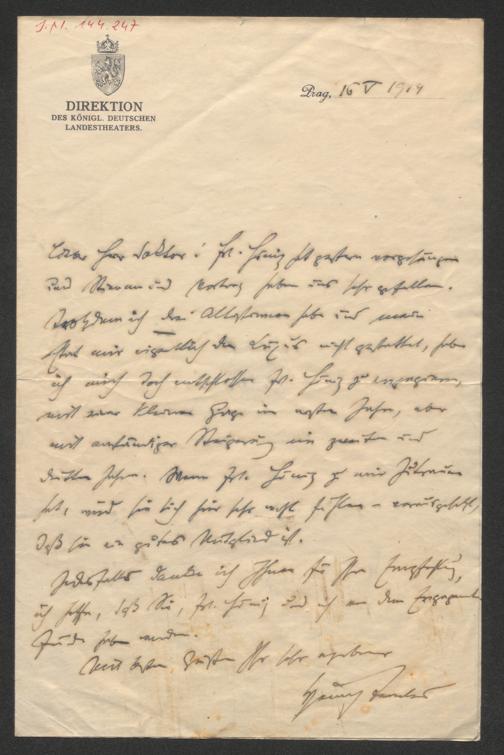 J.N. 144.247
DIREKTION
DES KÖNIGL. DEUTSCHEN
LANDESTHEATERS.
Prag, 16 V 1914
Lieber Herr Doktor! Frl. König hat gestern vorgesungen
und Stimme und Vortrag haben uns sehr gefallen.
Trotzdem ich drei Altistinnen habe und mein
Etat mir eigentlich den Luxus nicht gestattet, habe
ich mich doch entschlossen Frl. König zu engagieren,
mit einer kleinen Gage im ersten Jahr, aber
mit anständiger Steigerung im zweiten und
dritten Jahre. Wenn Frl. König zu mir Zutrauen
hat, wird sie sich hier sehr wohl fühlen – vorausgesetzt,
daß sie ein gutes Mitglied ist.
Jedenfalls danke ich Ihnen für Ihre Empfehlung,
ich hoffe, daß Sie, Frl. König und ich an dem Engagement
Freude haben werden.
Mit besten Grüßen Ihr sehr ergebener
Heinrich Teweles